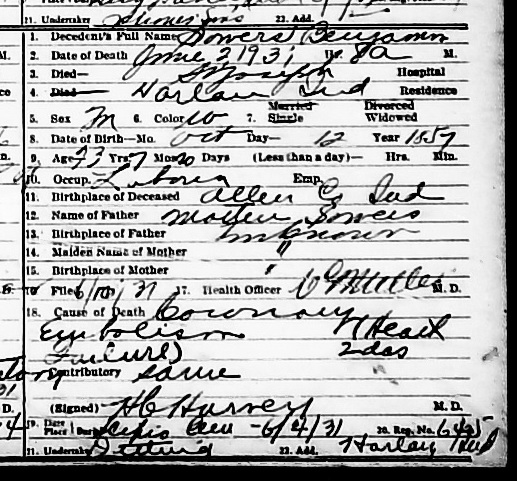 21. Undertaker Sons 22. Add.
1. Decedent's Full Name Sowers Benjamin
2. Date of Death June 2 1931 Hr. 8 a M.
3. Died— St Joseph Hospital
4. Died— Harlan Ind Residence
5. Sex M 6. Color W 7. Married Single Divorced Widowed
8. Date of Birth—Mo. Oct Day— 12 Year 1857
9. Age 73 Yrs 7 Mos 20 Days (Less than a day)— Hrs. Min.
10. Occup. Laborer Emp.
11. Birthplace of Deceased Allen Co Ind
12. Name of Father Sowers
13. Birthplace of Father Unknown
14. Maiden Name of Mother "
15. Birthplace of Mother "
16 Filed 6/10/31 17. Health Officer M. D.
18. Cause of Death Coronary
Embolism (Heart
Failure) 2 das
Contributory same
(Signed) H C Harvey M. D.
19. Date Place Burial Cem - 6/4/31 20. Reg. No. 645
21. Undertaker 22. Add. Harlan Ind